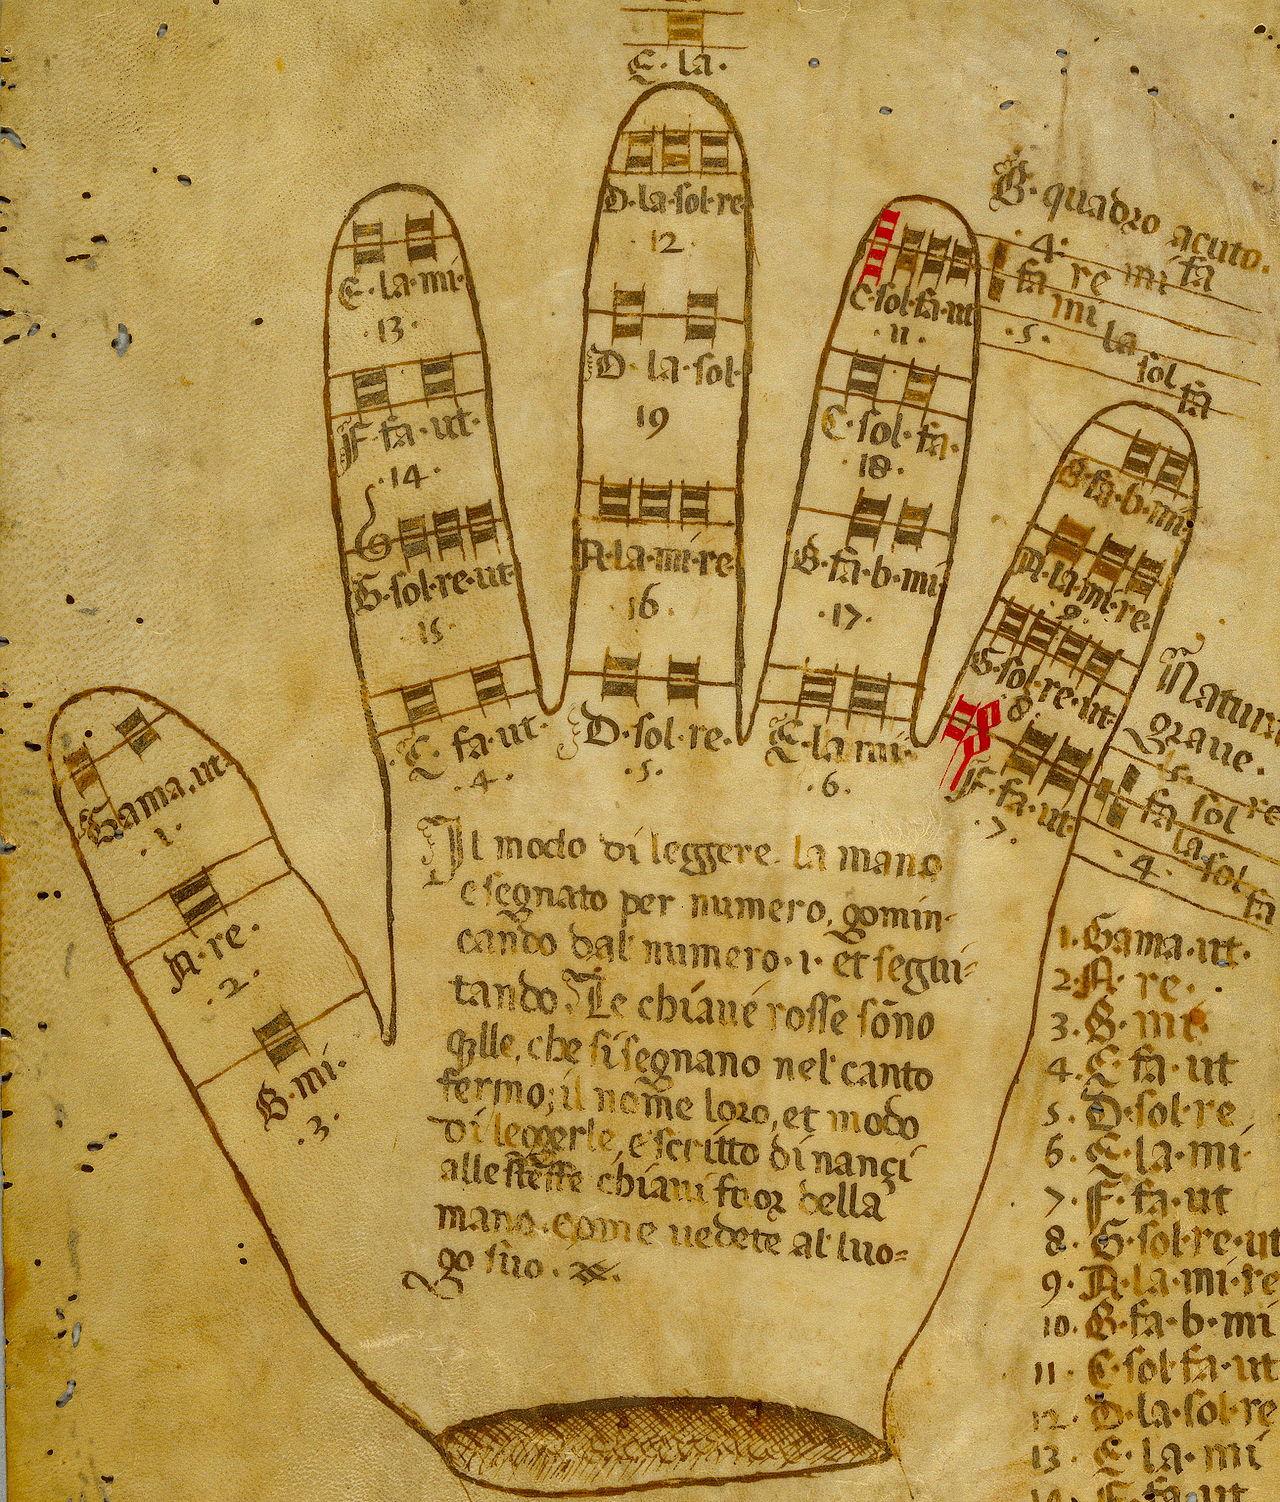 E·la·
D·la·sol·re
12
D·la·sol·
19
A·la·mi·re·
16
D·sol·re·
5
E·la·mi·
13
F·fa·ut·
14
G
G·sol·re·ut
15
C·fa·ut·
4
C·sol·fa·ut
11
C·sol·fa·
18
B·fa·b·mi
17
E·la·mi·
6
B·fa·b·mi
A·la·mi·re
9
G·sol·re·ut
8
F·fa·ut
7
Gama·ut·
1
A·re·
2
B·mi·
3
B·quadro acuto.
4
fa re mi fa
mi la sol fa
5
Natura
graue.
5
fa sol re
la sol fa
4
Il modo di leggere la mano
e segnato per numero, gomin-
cando dal numero·1· et seghui-
tando. Le chiaue rosse sono
qlle, che si segnano nel canto
fermo; il nome loro, et modo
di leggerle, e scritto dinanci
alle stesse chiaui fuor della
mano·come uedete al luo-
go suo.
1. Gama·ut·
2. A· re·
3. B· mi·
4. C fa·ut
5. D·sol·re
6. E·la·mi·
7. F·fa·ut
8. G·sol·re·ut
9. A·la·mi·re
10. B·fa·b·mi
11 C·sol·fa·ut
12 D·la·sol·re
13 E·la·mi
14 F·fa·ut